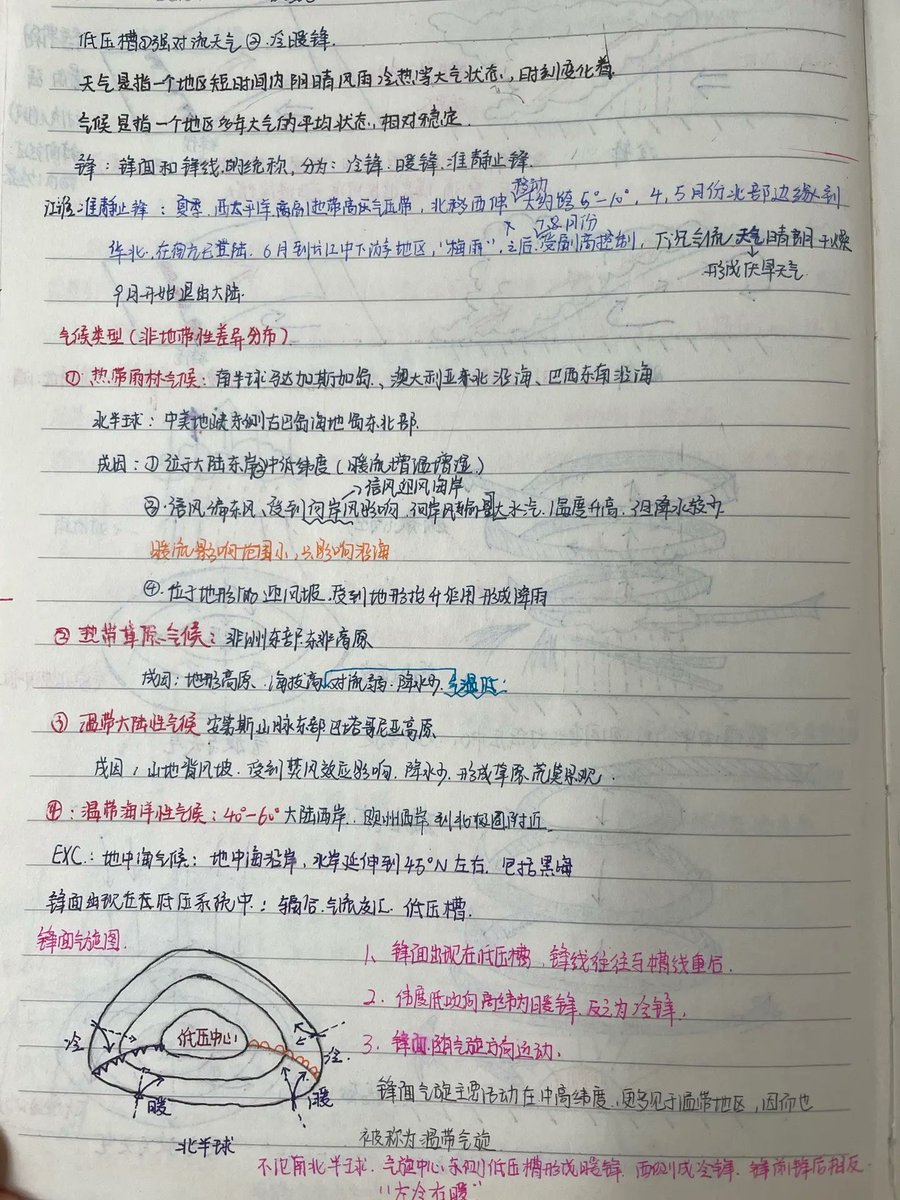 低压槽①强对流天气②冷暖锋.
天气是指一个地区短时间内阴晴风雨冷热等大气状态,时刻变化着
气候是指一个地区多年大气的平均状态,相对稳定.
锋:锋面和锋线的统称,分为:冷锋.暖锋.准静止锋.
移动
江淮准静止锋:夏季.西太平洋副热带高气压带,北移西伸大约跨5°-10°,4,5月份北部边缘到
7.8月份
华北.在南方已登陆.6月到长江中下游地区,"梅雨",之后.受副高控制,下沉气流天气晴朗干燥
形成伏旱天气.
9月开始退出大陆.
气候类型(非地带性差异分布)
①热带雨林气候:南半球马达加斯加岛、澳大利亚东北沿海、巴西东南沿海
北半球:中美地峡东侧古巴岛海地岛东北部.
成因:①位于大陆东岸②中低纬度(暖流增温增湿)
信风迎风海岸
③.信风偏东风、受到向岸风影响,向岸风输量大水汽.温度升高,但降水较少
暖流影响范围小,只影响沿海
④.位于地形的迎风坡.受到地形抬升作用形成降雨
②热带草原气候:非洲东部东非高原
成因:地形高原、海拔高对流弱.降水少.气温低.
③温带大陆性气候 安第斯山脉东部巴塔哥尼亚高原
成因:山地背风坡.受到焚风效应影响.降水少.形成草原荒漠景观.
④:温带海洋性气候:40°-60°大陆西岸.欧洲西岸到北极圈附近
EXC.:地中海气候:地中海沿岸,北岸延伸到45°N左右.包括黑海
锋面出现在在低压系统中.:辐合气流交汇.低压槽.
锋面气旋图.
1、锋面出现在低压槽,锋线往往与槽线重合.
2.纬度低吹向高纬为暖锋,反之为冷锋,
3.锋面随气旋方向运动、
锋面气旋主要活动在中高纬度.更多见于温带地区,因而也
被称为温带气旋
冷
低压中心
冷.
暖
暖
北半球
不论南北半球.气旋中心东侧低压槽形成暖锋.西侧成冷锋.锋前锋后相反.
"左冷右暖"